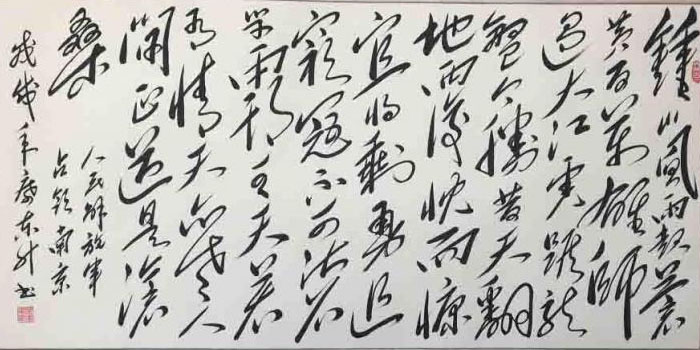 鍾山風雨起蒼
黄百万雄師
過大江虎踞龍
盤今勝昔天翻
地覆慨而慷
宜将剩勇追
窮寇不可沽名
学霸王天若
有情天亦老人
間正道是滄
桑
人民解放军
占领南京
戊戌年东升书